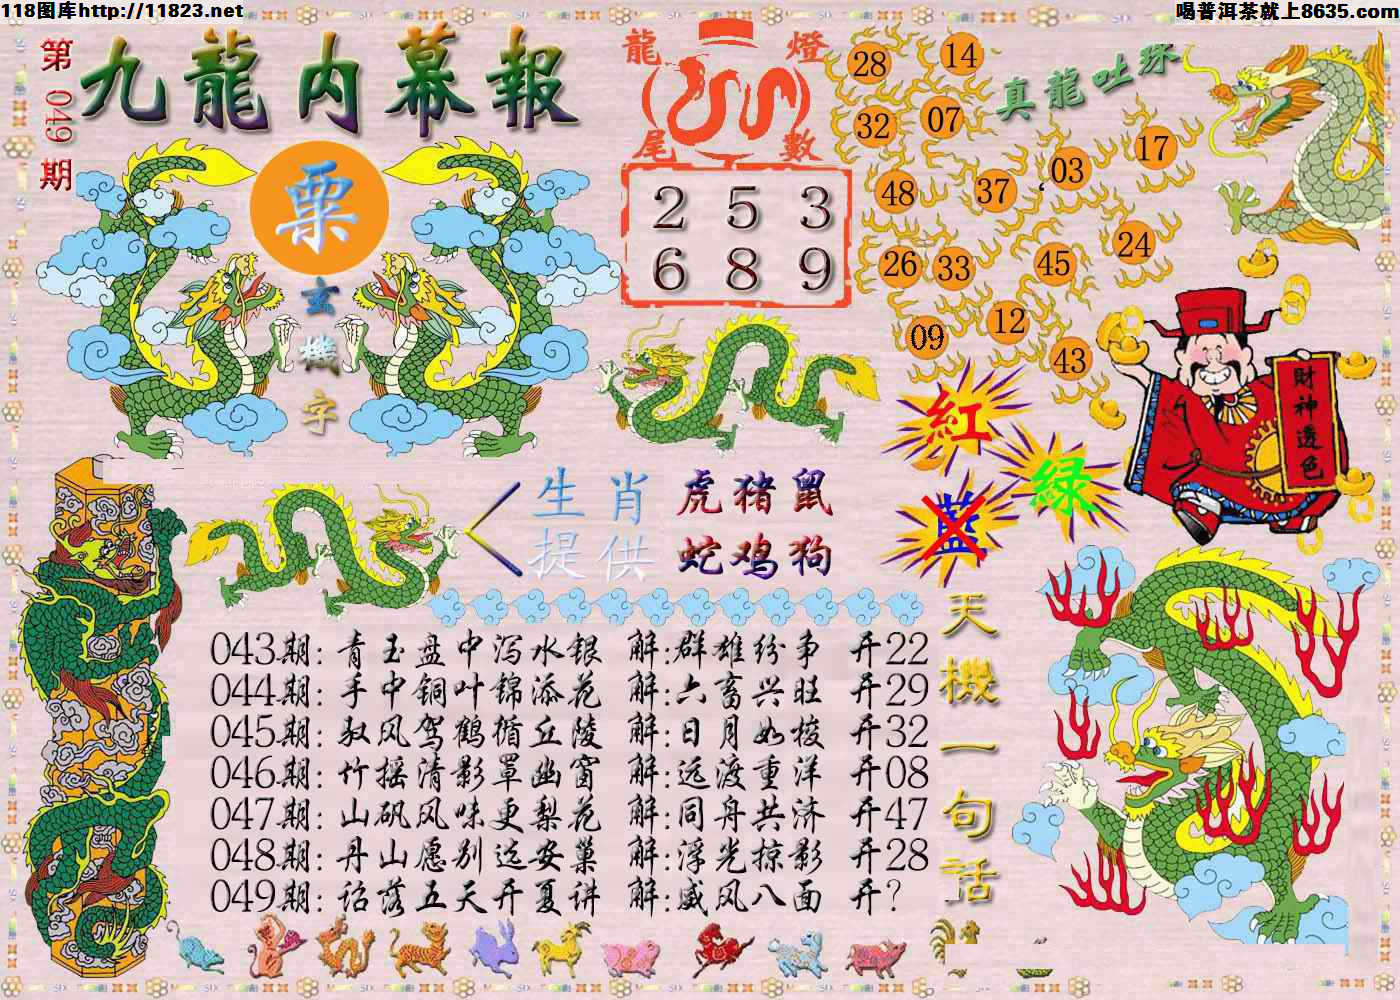 118图库http://11823.net
喝普洱茶就上8635.com
第049期
九龍内幕報
票
玄機字
龍燈
尾數
2 5 3
6 8 9
真龍吐珠
28 14
32 07
48 37 03 17
26 33 45 24
09 12 43
財神透色
紅
绿
藍
生肖 虎猪鼠
提供 蛇鸡狗
天機一句話
043期: 青玉盘中泻水银 解:群雄纷争 开22
044期: 手中铜叶锦添花 解:六畜兴旺 开29
045期: 驭风驾鹤循丘陵 解:日月如梭 开32
046期: 竹摇清影罩幽窗 解:远渡重洋 开08
047期: 山矾风味更梨花 解:同舟共济 开47
048期: 丹山愿别远安巢 解:浮光掠影 开28
049期: 诏落五天开夏讲 解:威风八面 开?